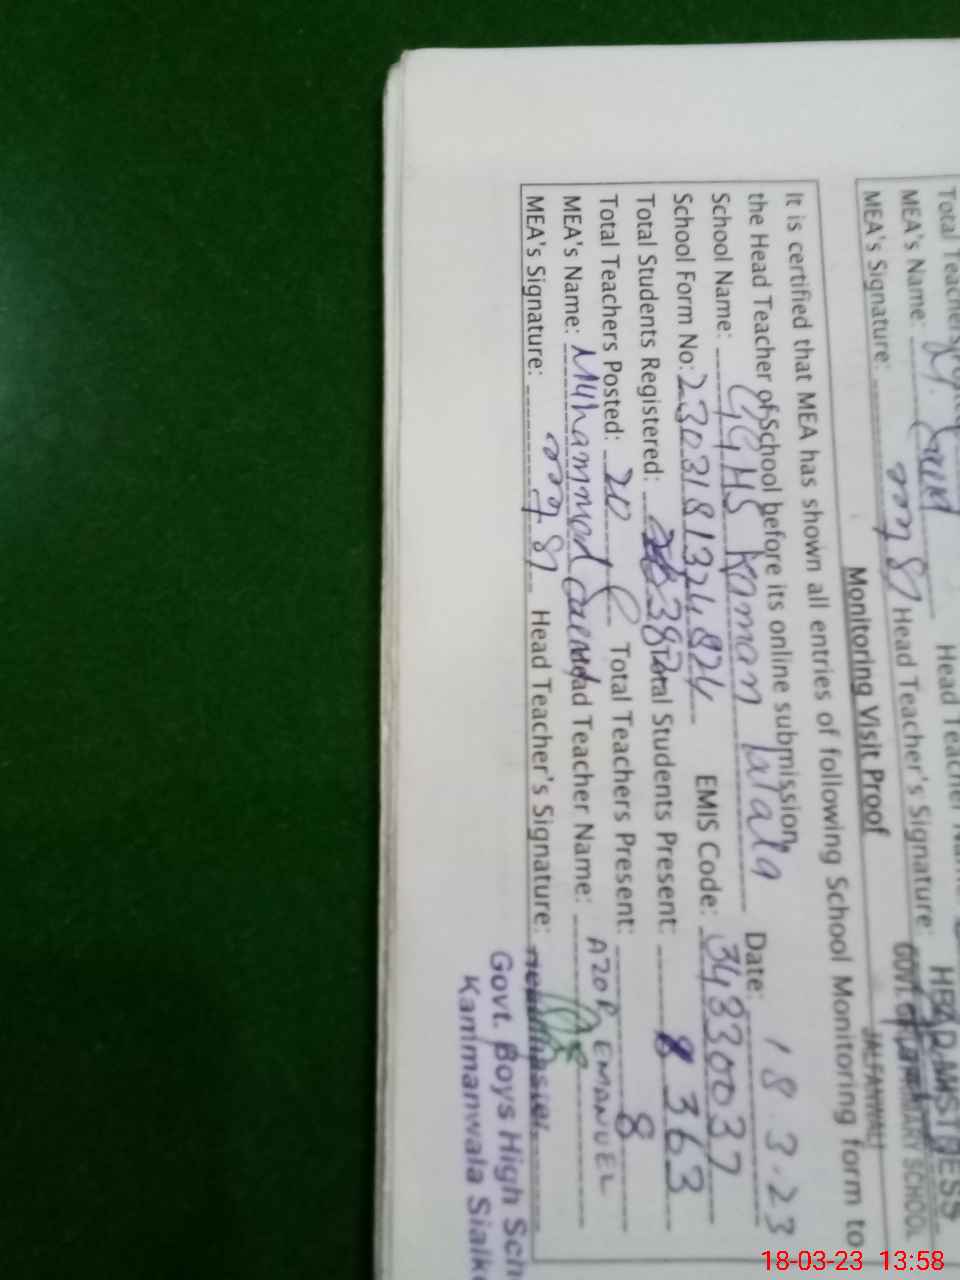 Total Teachers Head Teacher
MEA's Name: M. Saeed HEADMISTRESS
MEA's Signature: Head Teacher's Signature: GOVT. PRIMARY SCHOOL
JALFANWALI
Monitoring Visit Proof
It is certified that MEA has shown all entries of following School Monitoring form to
the Head Teacher of School before its online submission.
School Name: GGHS Kaman Walala Date: 18.3.23
School Form No: 2303181324824 EMIS Code: 34830037
Total Students Registered: 387 Total Students Present: 363
Total Teachers Posted: 20 Total Teachers Present: 8
MEA's Name: Muhammad Saeed Head Teacher Name: AZOR EMANUEL
MEA's Signature: Head Teacher's Signature: Headmaster
Govt. Boys High Sch
Kammanwala Sialk
18-03-23 13:58